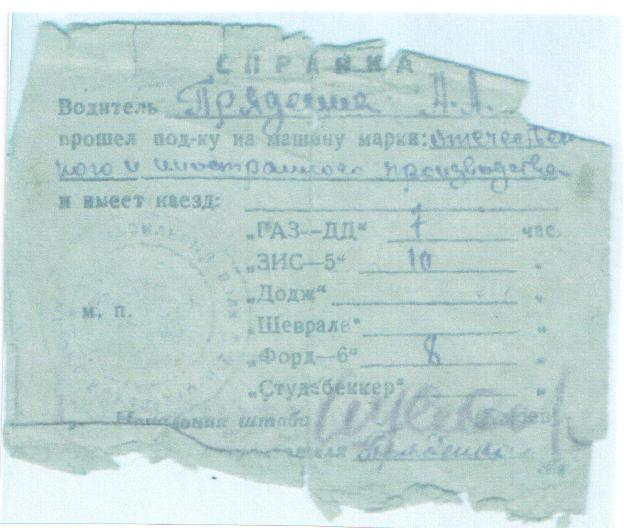 СПРАВКА
Водитель А. А.
прошел под-ку на машину марки: отечествен
ного и иностранного производства
и имеет наезд:
„ГАЗ—ДД“ 7 час.
„ЗИС—5“ 10 „
„Додж“ „
„Шевралё“ „
м. п.
„Форд—6“ 8 „
„Студебеккер“ „
Начальник штаба